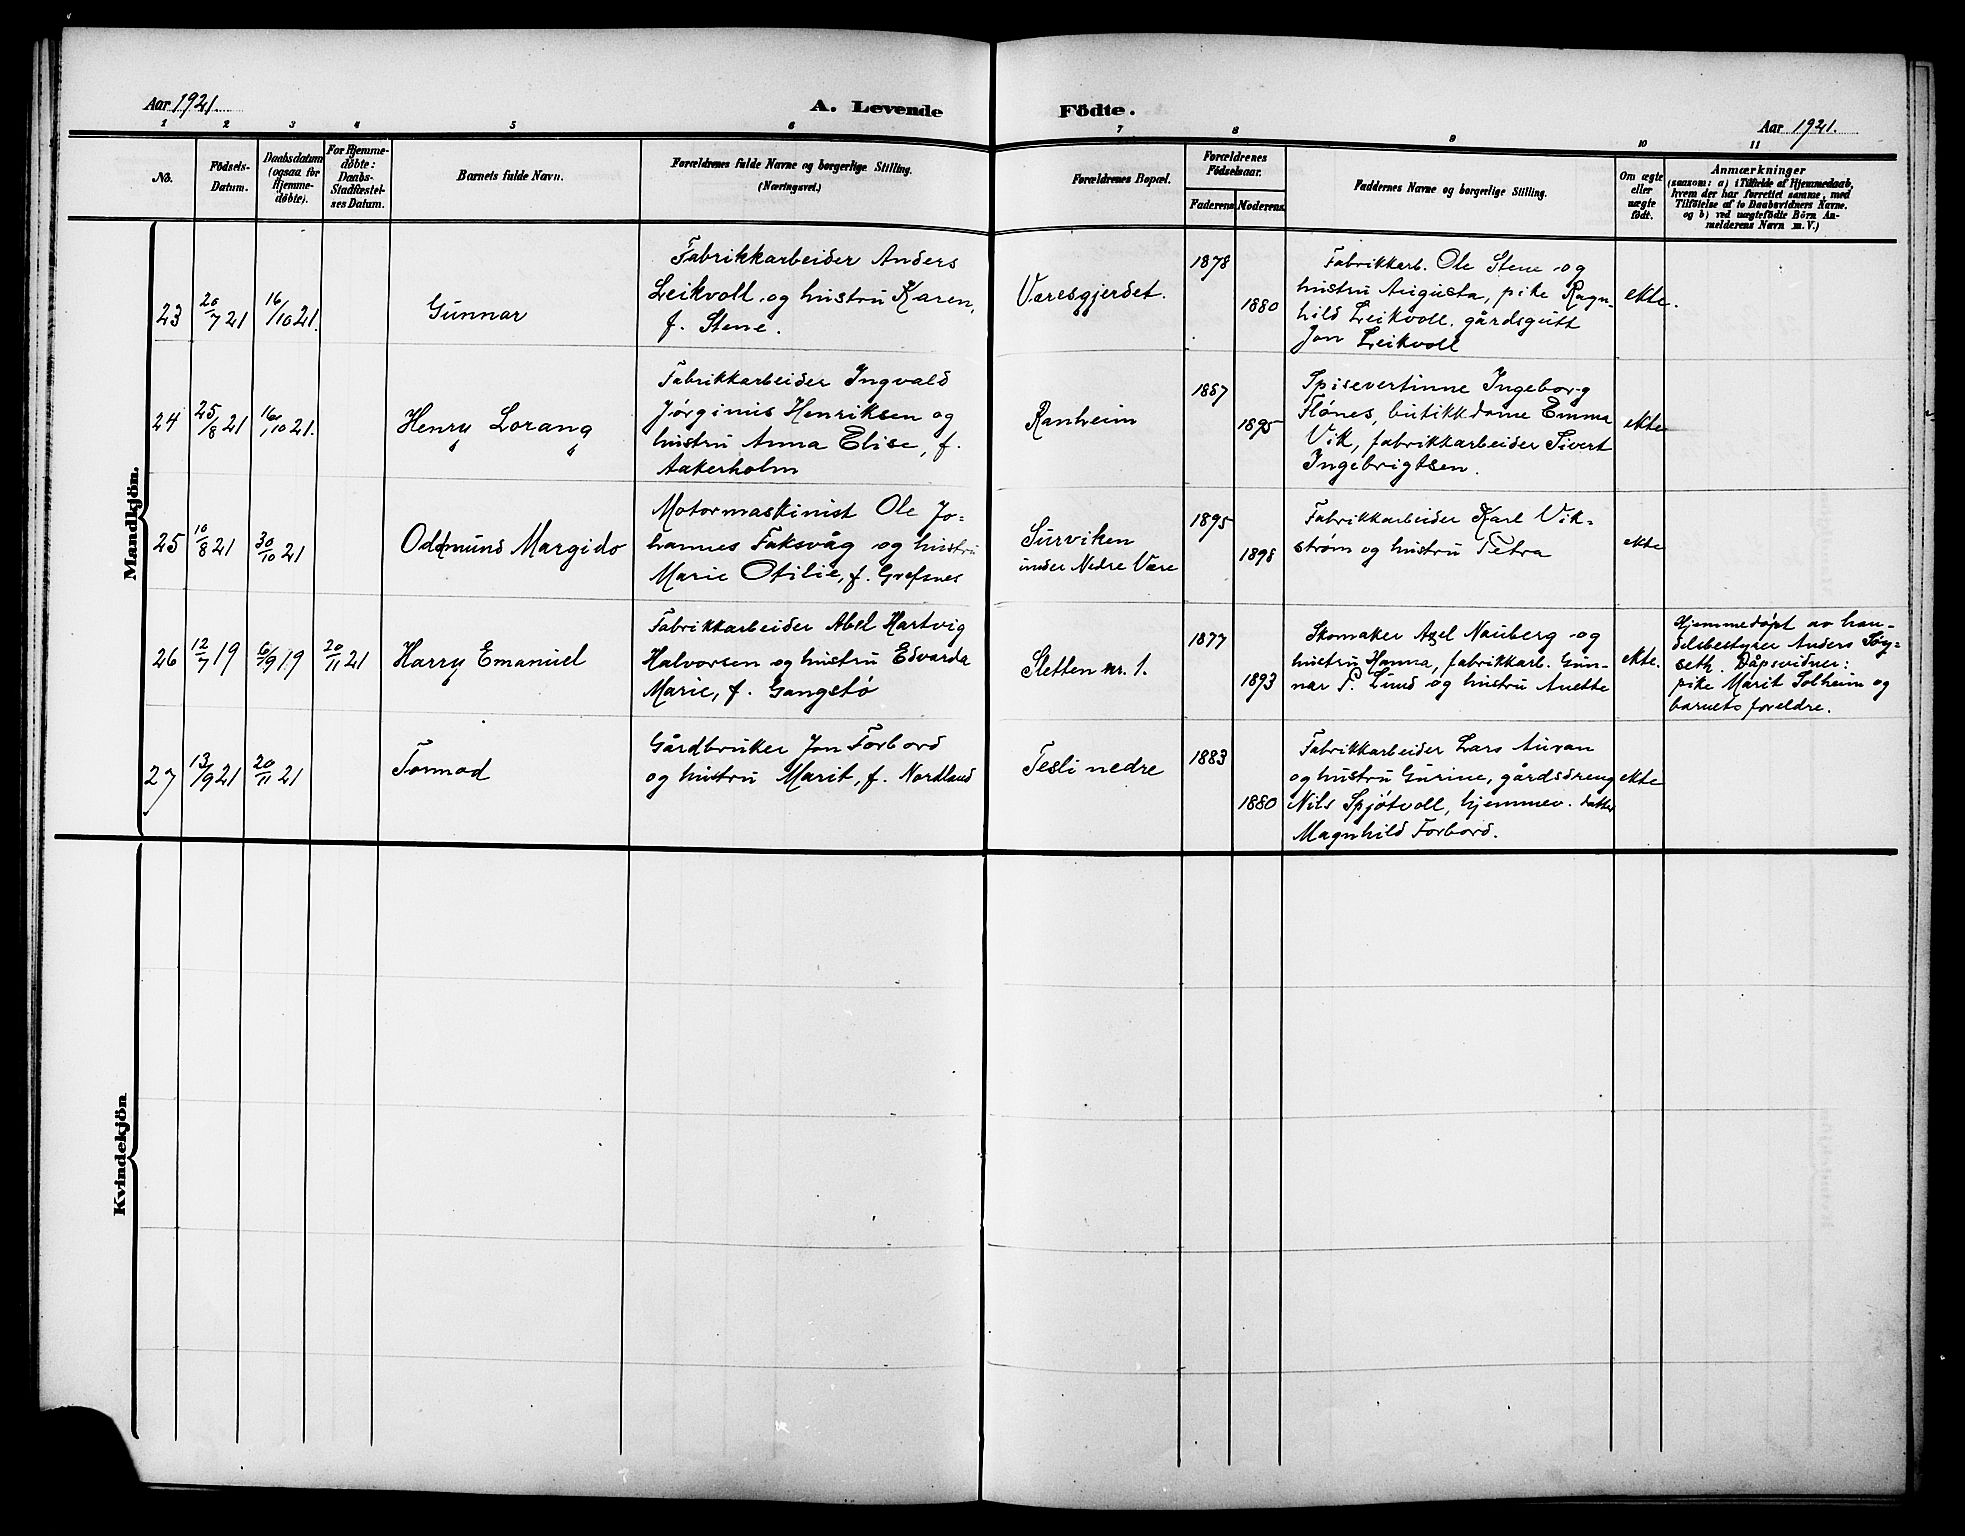 Aar 1921.
A. Levende Födte.
Aar 1921.
1 2 3 4 5 6 7 8 9 10 11
No.
Födsels-
Datum.
Daabsdatum
(ogsaa for
Hjemme-
døbte).
For Hjemme-
døbte:
Daabs-
Stadfæstel-
ses Datum.
Barnets fulde Navn.
Forældrenes fulde Navne og borgerlige Stilling.
(Næringsvei.)
Forældrenes Bopæl.
Forældrenes
Födselsaar.
Faderens
Moderens
Faddernes Navne og borgerlige Stilling.
Om ægte
eller
uægte
født.
Anmærkninger
(saasom: a) i Tilfælde af Hjemmedaab,
hvem der har forrettet samme, med
Tilföielse af to Daabsvidners Navne.
og b) ved uægtefödte Börn An-
melderens Navn m. V.)
Mandkjön.
23
20/7 21
16/10 21.
Gunnar
Fabrikkarbeider Anders
Leikvoll og hustru Karen,
f. Stene.
Væresgjerdet.
1878
1880
Fabrikkarb. Ole Stene og
hustru Augusta, pike Ragn-
hild Leikvoll, gårdsgutt
Jon Leikvoll
ekte.
24
25/8 21
16/10 21.
Henry Lorang
Fabrikkarbeider Ingvald
Jørginus Henriksen og
hustru Anna Elise, f.
Aakerholm
Ranheim
1887
1895
Spisevertinne Ingeborg
Flønes, butikkdame Emma
Vik, fabrikkarbeider Sivert
Ingebrigtsen.
ekte
25
10/8 21
30/10 21
Oddmund Margido
Motormaskinist Ole Jo-
hannes Faksvåg og hustru
Marie Otilie, f. Grefsnes
Surviken
under Nedre Være
1895
1898
Fabrikkarbeider Karl Vik-
strøm og hustru Petra
ekte
26
12/7 19
6/9 19
20/11 21
Harry Emanuel
Fabrikkarbeider Abel Hartvig
Halvorsen og hustru Edvarda
Marie, f. Gangstø
Sletten nr. 1.
1877
1893
Skomaker Axel Nauberg og
hustru Hanna, fabrikkarb. Gun-
nar P. Lund og hustru Anette
ekte.
Hjemmedøpt av han-
delsbestyrer Anders Søy-
seth. Dåpsvidner:
pike Marit Solheim og
barnets foreldre.
27
13/9 21
20/11 21
Tormod
Gårdbruker Jon Forbord
og hustru Marit, f. Nordland
Tesli nedre
1883
1880
Fabrikkarbeider Lars Auran
og hustru Gurine, gårdsdreng
Nils Spjøtvoll, hjemmev. datter
Magnhild Forbord.
ekte
Kvindekjön